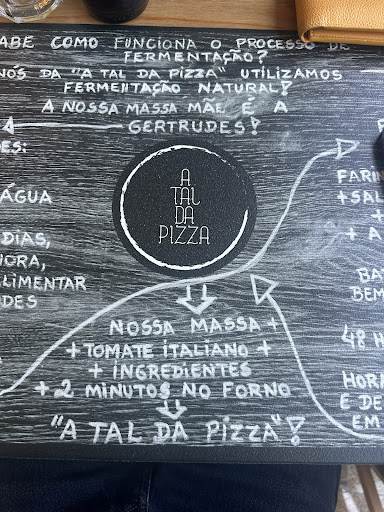 ABE COMO FUNCIONA O PROCESSO DE
FERMENTAÇÃO?
NÓS DA "A TAL DA PIZZA" UTILIZAMOS
FERMENTAÇÃO NATURAL!
A NOSSA MASSA MÃE É A
GERTRUDES!
ES:
ÁGUA
DIAS,
HORA,
LIMENTAR
DES
A
TAL
DA
PIZZA
FARIN
+ SAL
+
+ A
BA
BEM
48 H
HOR
E DE
EM
NOSSA MASSA +
+ TOMATE ITALIANO +
+ INGREDIENTES
+ 2 MINUTOS NO FORNO
"A TAL DA PIZZA"!